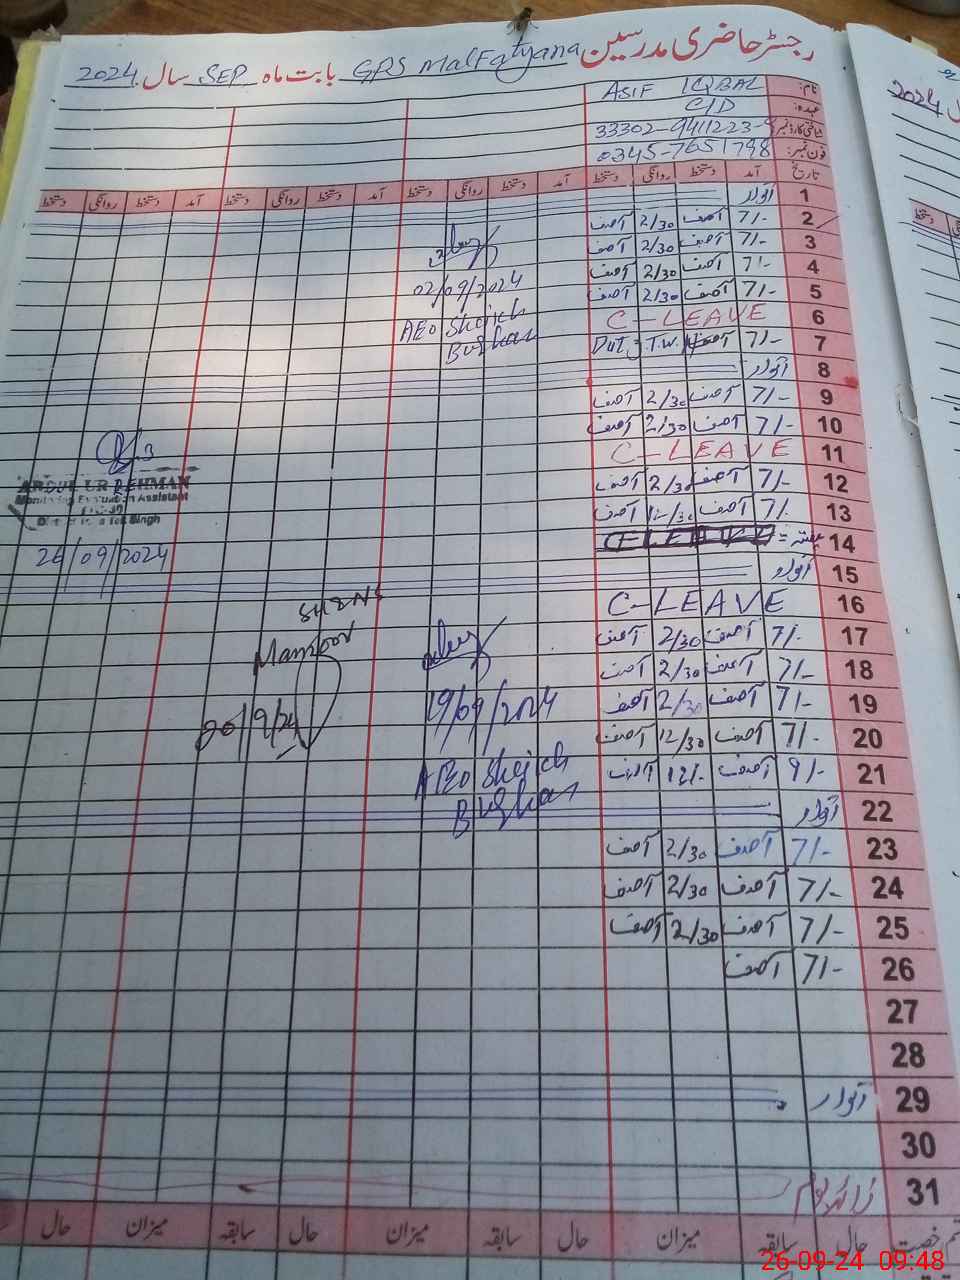 رجسٹر حاضری مدرسین GPS Mal Fatyana بابت ماہ SEP سال 2024
نام: ASIF IQBAL
عہدہ: C/D
شناختی کارڈ نمبر 33302-9411223-9
فون نمبر: 0345-7651798
تاریخ آمد دستخط روانگی دستخط آمد دستخط روانگی دستخط آمد دستخط روانگی دستخط آمد دستخط روانگی دستخط
1 اتوار
2 7/- آصف 2/30 آصف
3 7/- آصف 2/30 آصف
4 7/- آصف 2/30 آصف
02/09/2024
5 7/- آصف 2/30 آصف
6 C-LEAVE
AEO Sheikh
7 7/- آصف T.W. Duty
Bughan
8 اتوار
9 7/- آصف 2/30 آصف
10 7/- آصف 2/30 آصف
11 C-LEAVE
12 7/- آصف 2/30 آصف
ABDUL UR REHMAN
Monitoring Evaluation Assistant
13 7/- آصف 12/30 آصف
14 ہفتہ
26/09/2024
15 اتوار
16 C-LEAVE
17 7/- آصف 2/30 آصف
Manzoor
18 7/- آصف 2/30 آصف
19 7/- آصف 2/30 آصف
19/09/2024
20/9/24
20 7/- آصف 12/30 آصف
21 9/- آصف 12/- آصف
AEO Sheikh
Bughan
22 اتوار
23 7/- آصف 2/30 آصف
24 7/- آصف 2/30 آصف
25 7/- آصف 2/30 آصف
26 7/- آصف
27
28
29 اتوار
30
31 زائد یوم
قسم رخصت حال سابقہ میزان حال سابقہ میزان حال سابقہ میزان حال
2024
دستخط
26-09-24 09:48